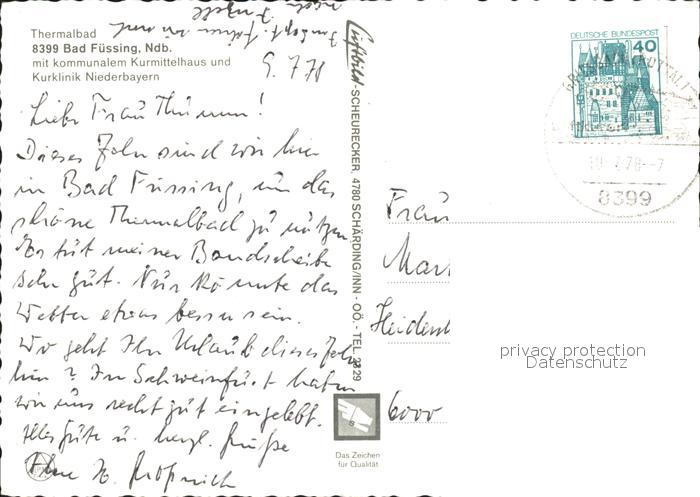 Thermalbad
8399 Bad Füssing, Ndb.
mit kommunalem Kurmittelhaus und
Kurklinik Niederbayern
9.7.78
Liebe Frau Thumm!
Dieses Jahr sind wir hier
in Bad Füssing, um das
schöne Thermalbad zu nützen.
Es tut meiner Bandscheibe
sehr gut. Nur könnte das
Wetter etwas besser sein.
Wo geht Ihr Urlaub dieses Jahr
hin? In Schweinfurt haben
wir uns recht gut eingelebt.
Alles Gute u. herzl. Grüße
Luftbild-SCHEURECKER, 4780 SCHÄRDING/INN - OÖ. - TEL. 2329
Das Zeichen
für Qualität
DEUTSCHE BUNDESPOST
40
8399
Frau
6000
privacy protection
Datenschutz